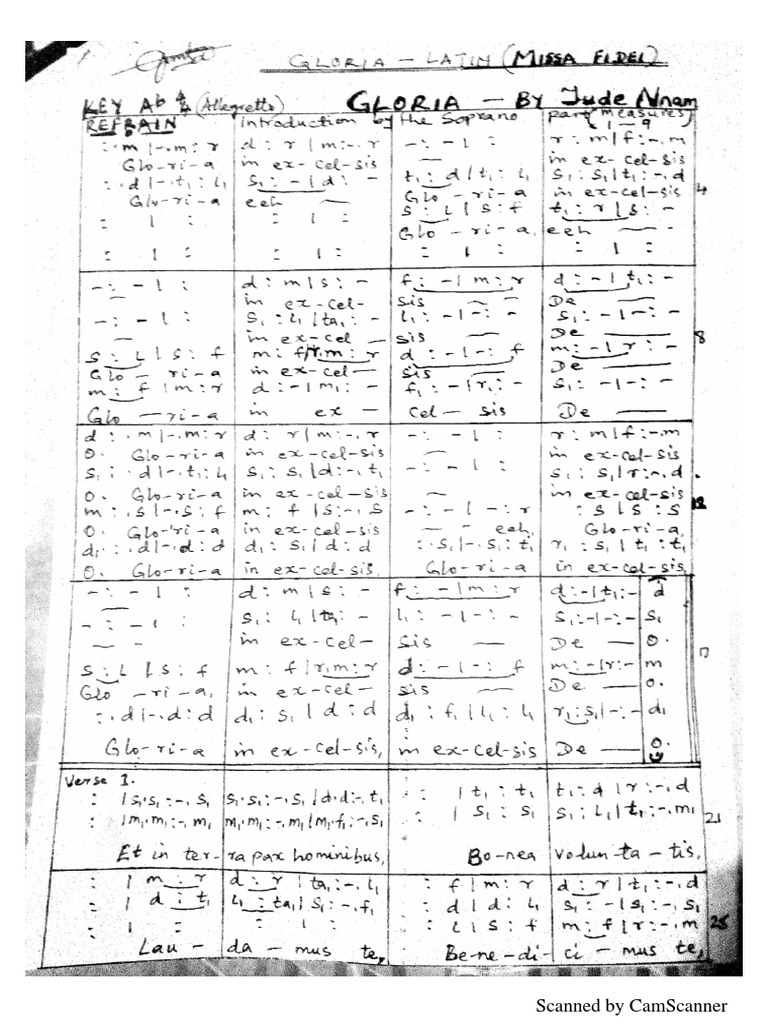 GLORIA – LATIN (MISSA FIDEI)
KEY Ab 4/4 (Allegretto) GLORIA – BY Jude Nnam
REFRAIN introduction by the Soprano part (measures 1–9
: . m | - . m : r d : r | m : - . r - : - | : r : m | f : - . m
Glo-ri-a in ex-cel-sis in ex-cel-sis
: . d | - . t₁ : l₁ s₁ : - | d : - t₁ : d | t₁ : l₁ s₁ : s₁ | t₁ : - . d 4
Glo-ri-a eeh Glo-ri-a in ex-cel-sis
: | : : | : s : l | s : f t₁ : r | s : -
Glo-ri-a, eeh
: | : : | : : | : : | :
- : - | : d : m | s : - f : - | m : r d : - | t₁ : -
in ex-cel- sis De
- : - | : s₁ : l₁ | ta₁ : - l₁ : - | - : - s₁ : - | - : - 8
in ex-cel- sis De
s : l | s : f m : f | r . m : r d : - | - : f m : - | r : -
Glo-ri-a in ex-cel- sis De
m : f | m : r d : - | m₁ : - f₁ : - | r₁ : - s₁ : - | - : -
Glo-ri-a in ex- cel-sis De
d : . m | - . m : r d : r | m : - . r - : - | : r : m | f : - . m
O. Glo-ri-a in ex-cel-sis in ex-cel-sis
s₁ : . d | - . t₁ : l₁ s₁ : s₁ | d : - . t₁ - : - | : s₁ : s₁ | r : - . d
O. Glo-ri-a in ex-cel-sis in ex-cel-sis 12
m : . s | - . s : f m : f | s : - . s - : - | - : r : s | s : s
O. Glo-ri-a in ex-cel-sis eeh, Glo-ri-a,
d₁ : . d | - . d : d d₁ : s₁ | d : d : . s₁ | - . s₁ : t₁ r₁ : s₁ | t₁ : t₁
O. Glo-ri-a in ex-cel-sis. Glo-ri-a in ex-cel-sis,
- : - | : d : m | s : - f : - | m : r d : - | t₁ : - d
- : - | : s₁ : l₁ | ta₁ : - l₁ : - | - : - s₁ : - | - : - s₁
in ex-cel- sis De O.
s : l | s : f m : f | r . m : r d : - | - : f m : - | r : - m 17
Glo-ri-a, in ex-cel- sis De O.
: . d | - . d : d d₁ : s₁ | d : d d₁ : f₁ | l₁ : l₁ r₁ : s₁ | - : - d₁
Glo-ri-a in ex-cel-sis, in ex-cel-sis De O.
Verse 1.
: | s₁ . s₁ : - . s₁ s₁ . s₁ : - . s₁ | d . d : - . t₁ : | t₁ : t₁ t₁ : d | r : - . d
: | m₁ . m₁ : - . m₁ m₁ . m₁ : - . m₁ | m₁ . f₁ : - . s₁ : | s₁ : s₁ s₁ : l₁ | t₁ : - . m₁ 21
Et in ter-ra pax hominibus, Bo-nea volun-ta-tis,
: | m : r d : r | ta₁ : - . l₁ : f | m : r d : r | t₁ : - . d
: | d : t₁ l₁ : ta₁ | s₁ : - . f₁ : d | d : l₁ s₁ : - | s₁ : - . s₁
: | : : | : : l | s : f m : f | r : - . m 25
Lau-da-mus te, Be-ne-di-ci-mus te,
Scanned by CamScanner